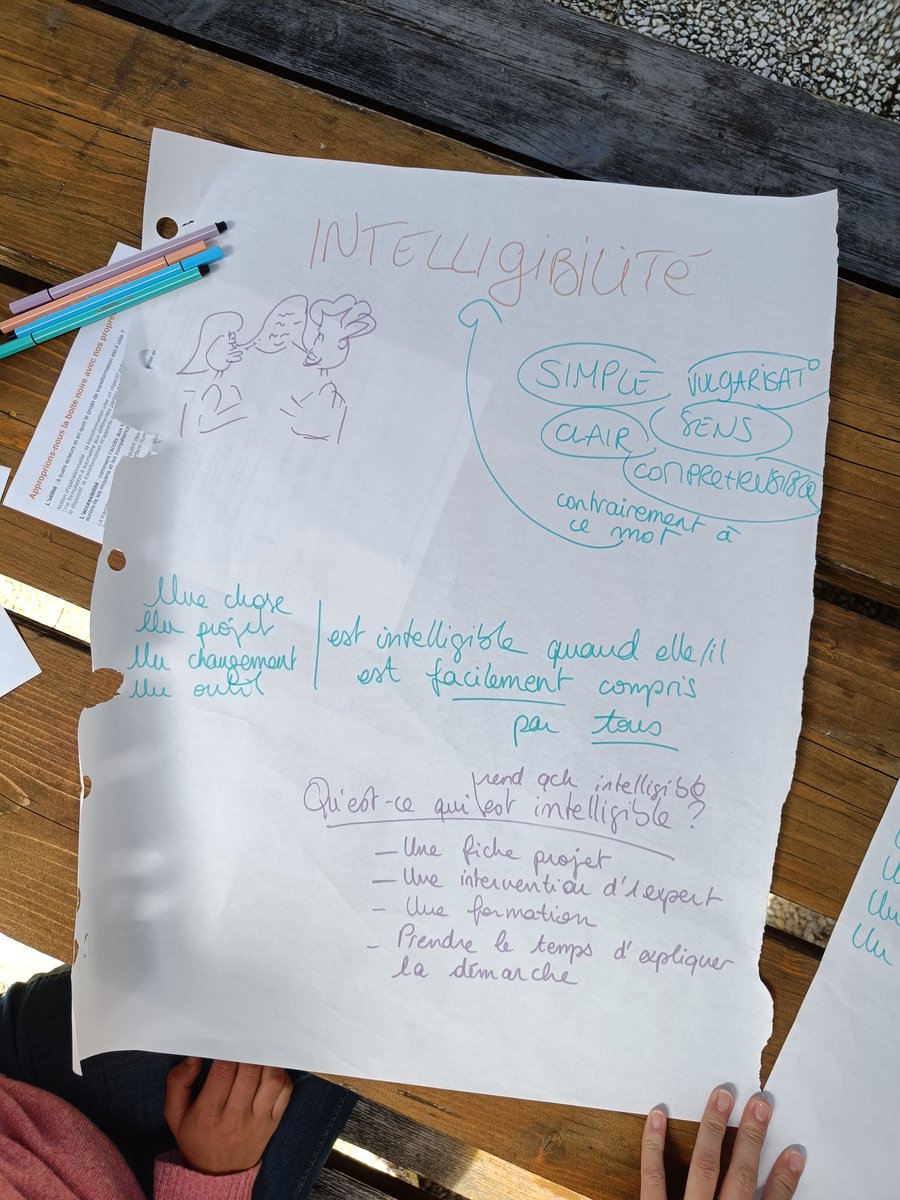 INTELLIGIBILITÉ
SIMPLE
VULGARISAT°
CLAIR
SENS
COMPREHENSIBLE
contrairement à
ce mot
Une chose
Un projet
Un changement
Un outil
est intelligible quand elle/il
est facilement compris
par tous
rend qch intelligible
Qu'est-ce qui est intelligible ?
- Une fiche projet
- Une intervention d'1 expert
- Une formation
- Prendre le temps d'expliquer
la démarche
Approprions-nous la boite noire avec nos propre
L'utilité : à quels acteurs et en quoi le projet de transformation est il utile ?
Un
Un